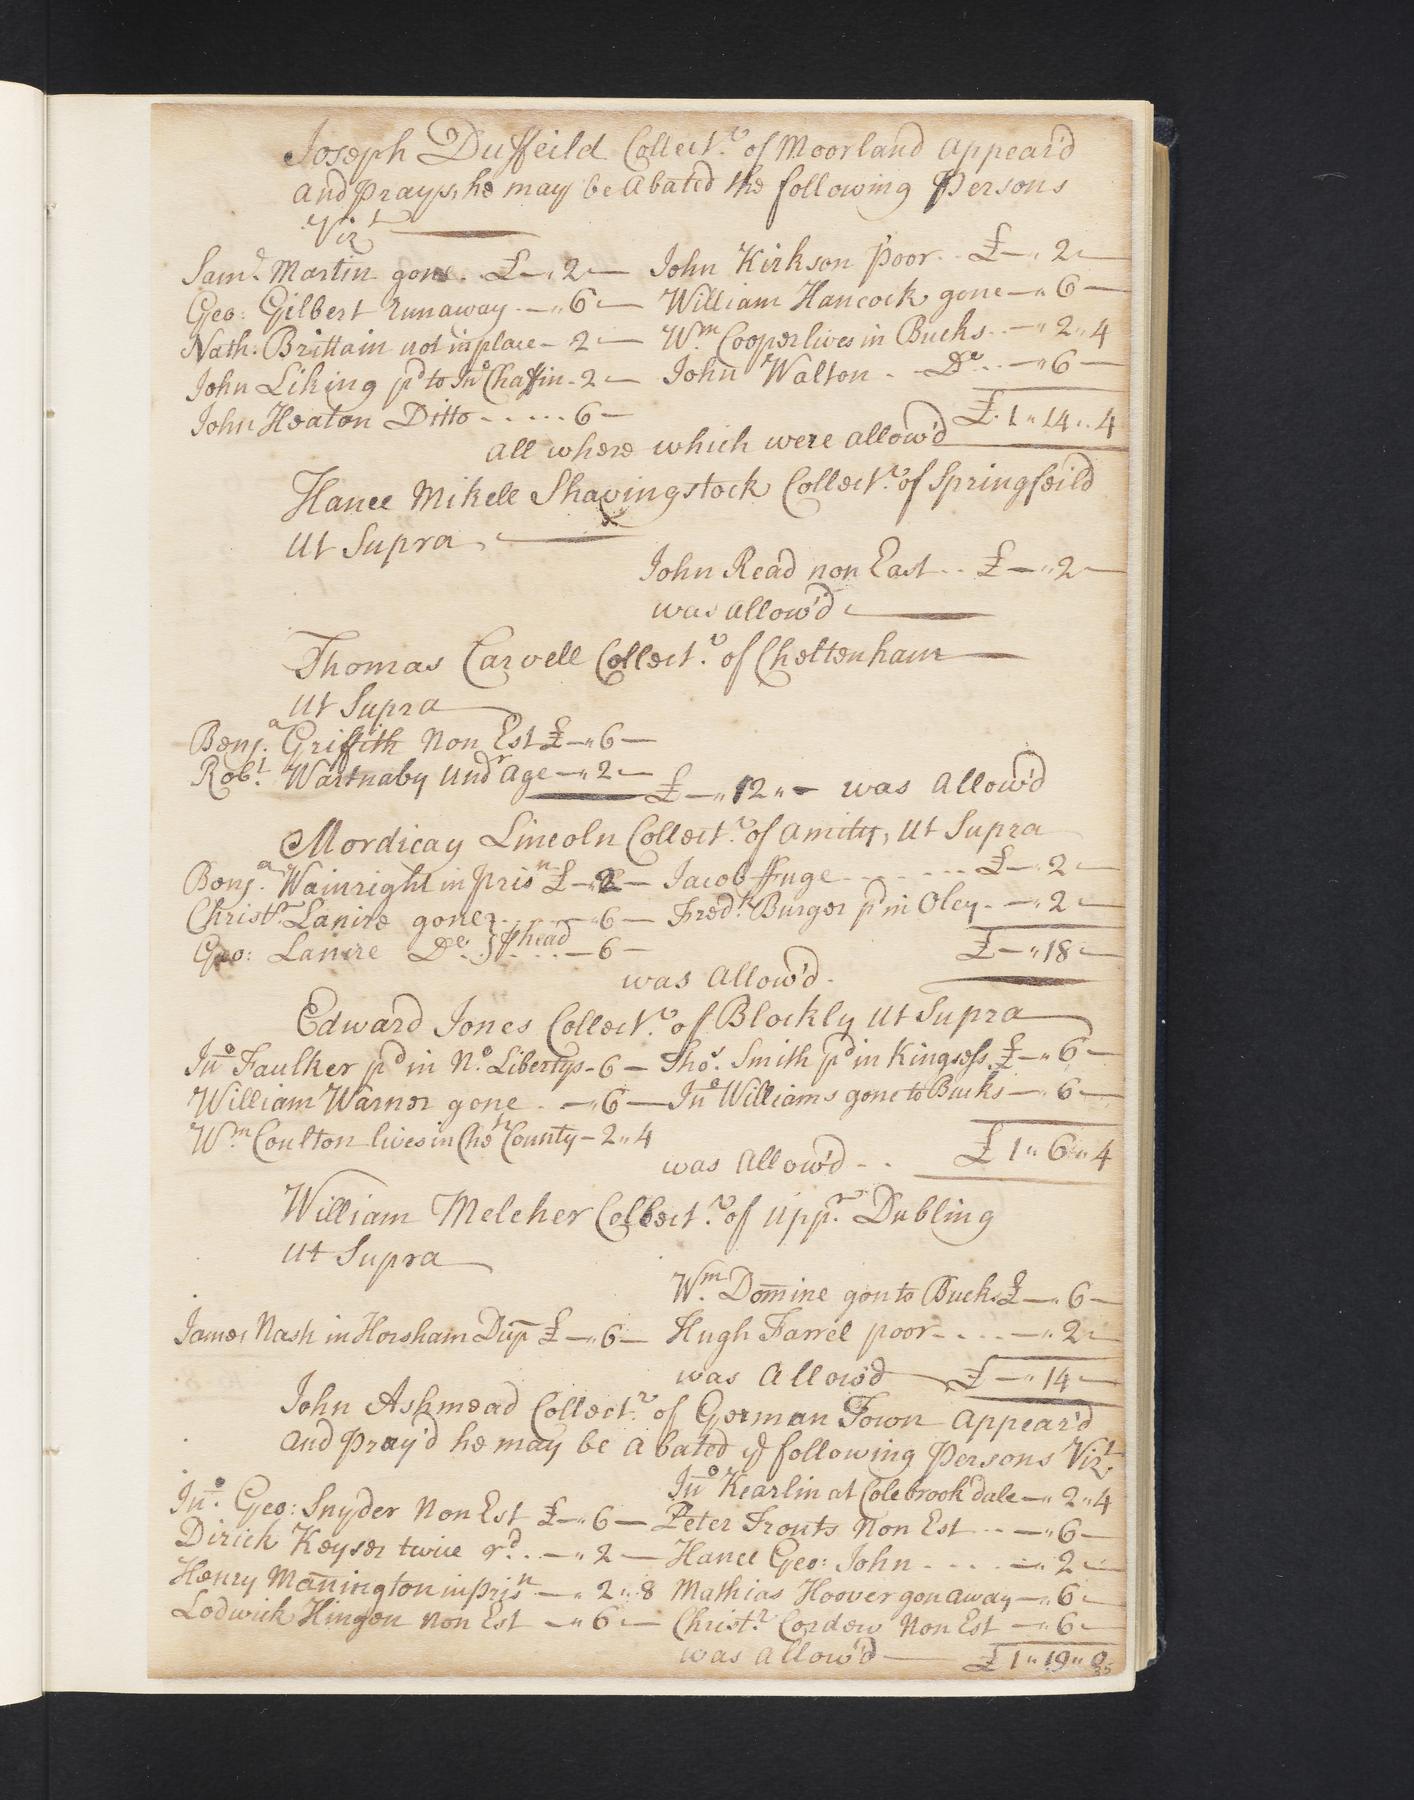 Joseph Duffeild Collect.r of Moorland Appear'd
And prays, he may be Abated the following Persons
Vizt
Saml. Martin gone .. £ — „ 2 — John Kirkson Poor .. £ — „ 2 —
Geo: Gilbert Runaway . — „ 6 — William Hancock gone — „ 6 —
Nath: Brittain not in place — 2 — Wm. Cooper lives in Bucks .. — „ 2 „ 4
John Liking pd to Jno Chaffin - 2 — John Walton . Do ... — „ 6 —
John Heaton Ditto - . . . . 6 — £ 1 „ 14 „ 4
all where which were allow'd
Hance Mikell Shavingstock Collect.r of Springfeild
Ut Supra
John Read non East .. £ — „ 2 —
was allow'd
Thomas Carvell Collect.r of Cheltenham
Ut Supra
Benja. Griffith Non Est £ — „ 6 —
Robt. Wartnaby Undr Age — „ 2 —
£ — „ 12 „ — was Allow'd
Mordicay Lincoln Collect.r of Amity, Ut Supra
Benja. Wainright in Prisn £ — „ 2 — Jacob ffuge - - - - £ — „ 2 —
Christr. Lanire gone - - - 6 — Fredk. Burger pd in Oley . — „ 2 —
Geo: Lanire Do. - - - 6 — £ — „ 18 —
was Allow'd.
Edward Jones Collect.r of Blockly Ut Supra
Jno Faulker pd in No. Libertys - 6 — Thos. Smith pd in Kingsess. £ — „ 6 —
William Warner gone . — „ 6 — Jno Williams gone to Bucks — „ 6 —
Wm. Coulton lives in Chesr County — 2 „ 4 £ 1 „ 6 „ 4
was Allow'd - .
William Melcher Collect.r of Uppr. Dubling
Ut Supra
Wm. Domine gon to Bucks £ — „ 6 —
James Nash in Horsham Dup £ — „ 6 — Hugh Farrel poor - . . . — „ 2 —
was Allow'd £ — „ 14 —
John Ashmead Collect.r of German Town Appear'd
And Pray'd he may be Abated ye following Persons Vizt.
Jno Kearlin at Colebrook dale — „ 2 „ 4
Jno. Geo: Snyder Non Est £ — „ 6 — Peter Trouts Non Est .. — „ 6 —
Dirick Keyser twice rd. . — „ 2 — Hance Geo: John - . . . — „ 2 —
Henry Manington in prisn — „ 2 „ 8 Mathias Hoover gon away — „ 6 —
Lodwick Hingen Non Est — „ 6 — Christr. Cordew Non Est — „ 6 —
was Allow'd £ 1 „ 19 „ 0